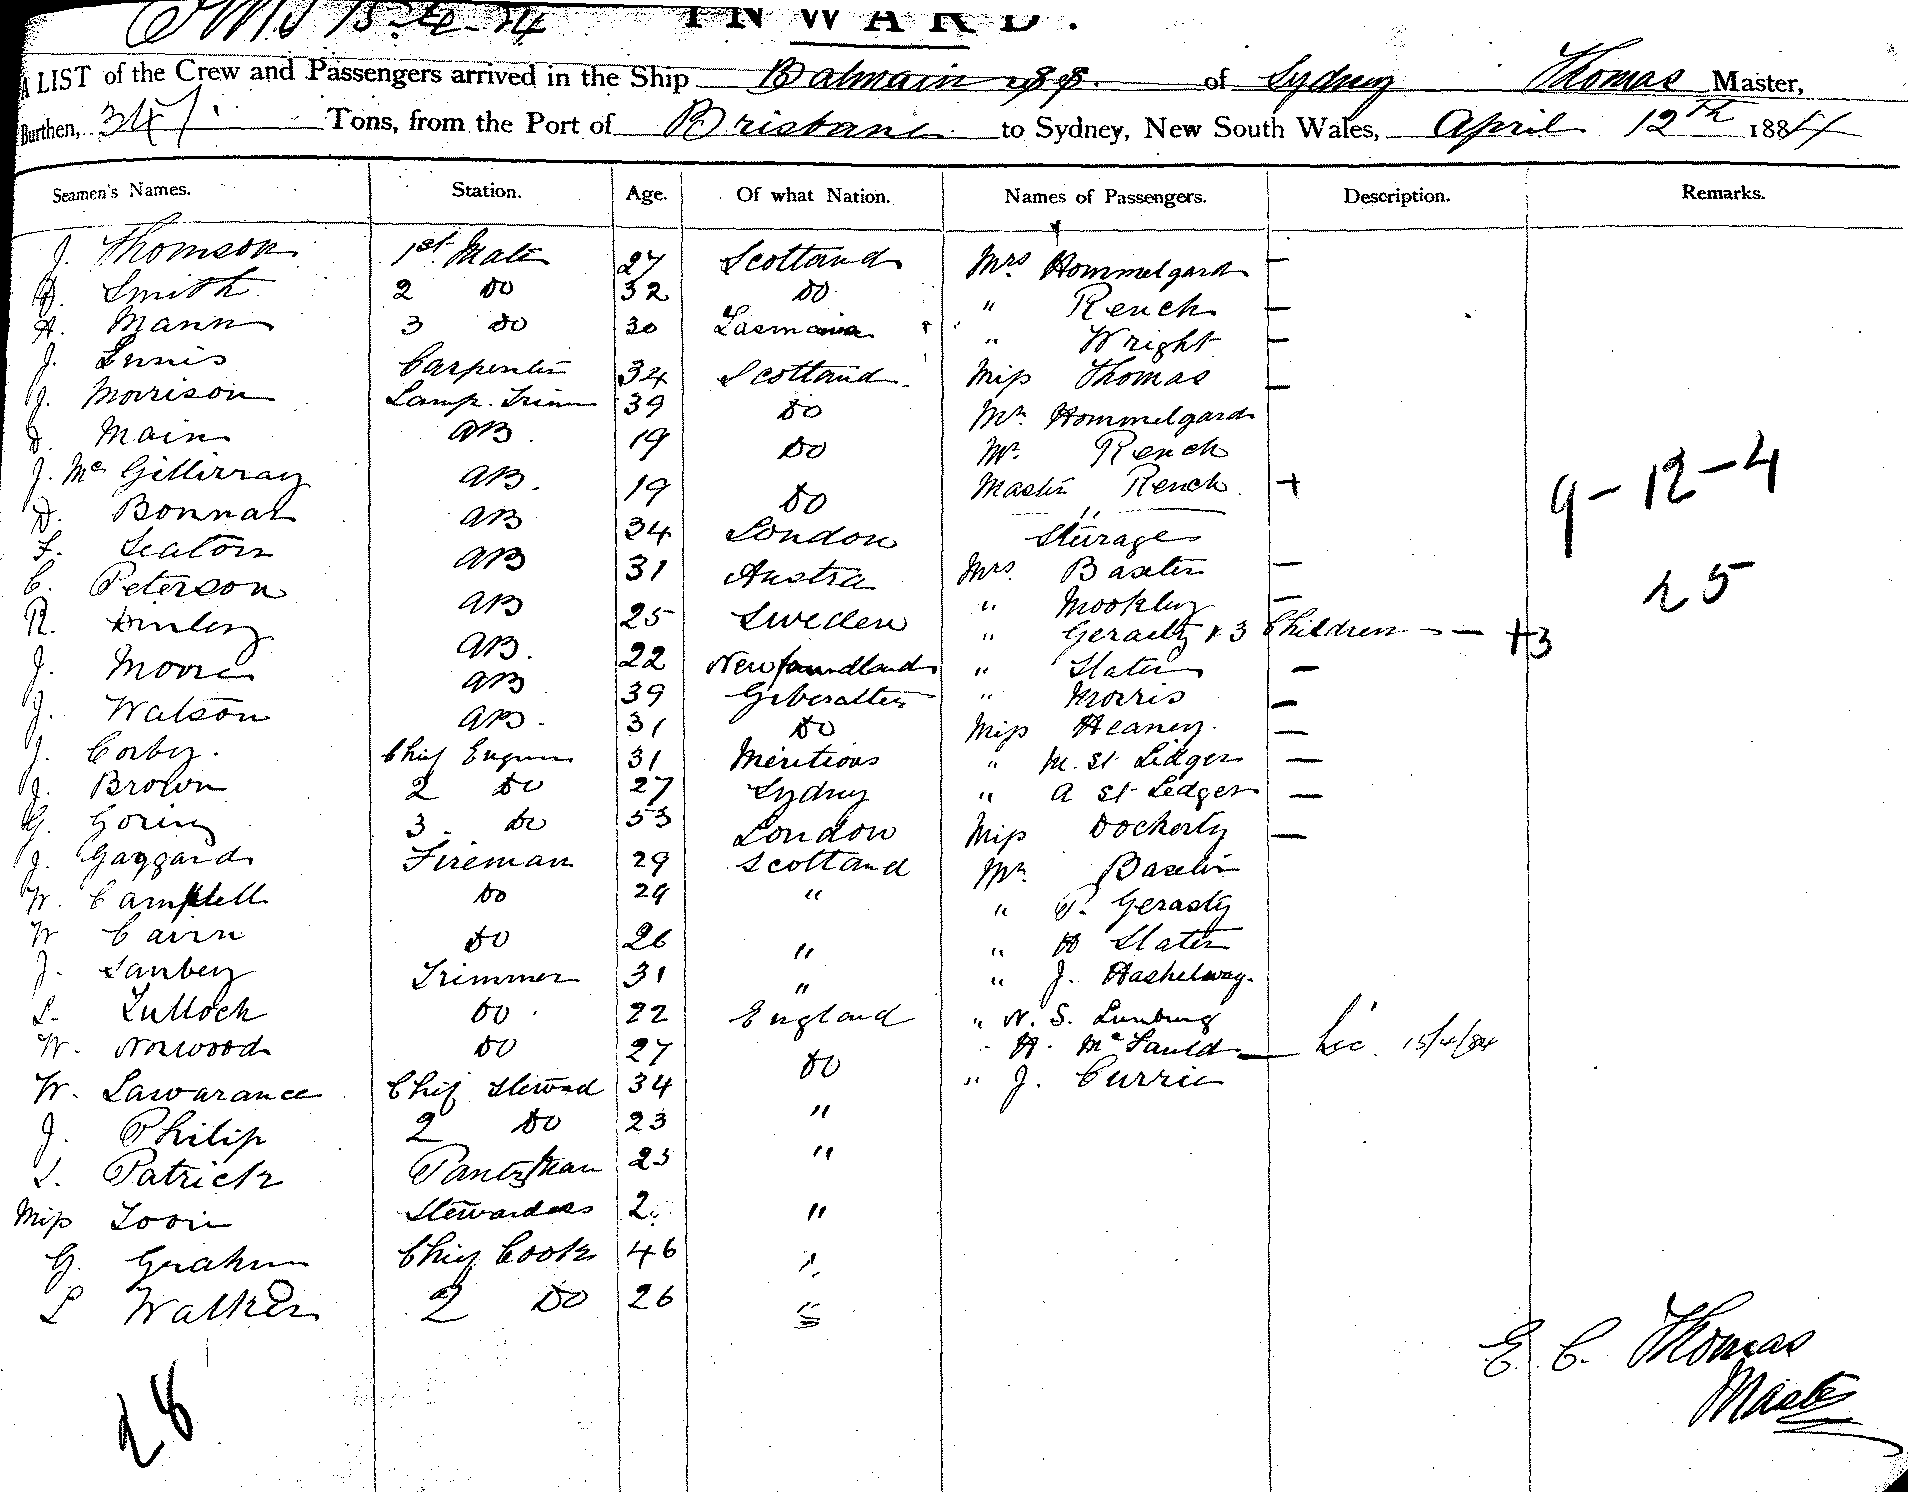 INWARD.
A LIST of the Crew and Passengers arrived in the Ship Balmain of Sydney Thomas Master,
Burthen, Tons, from the Port of Brisbane to Sydney, New South Wales, April 12th 1884
Seamen's Names. Station. Age. Of what Nation. Names of Passengers. Description. Remarks.
J. Thomson 1st Mate 27 Scotland Mrs Hommelgard —
Smith 2 Do 32 Do " Rench —
A. Mann 3 Do 30 Tasmania " Wright —
J. Innis Carpenter 34 Scotland Miss Thomas —
J. Morrison Lamp. Trim 39 Do Mr Hommelgard
Main AB. 19 Do Mr. Rench
J. McGillivray AB. 19 Do Master Rench +
D. Bonnar AB 34 London Steerage
F. Seaton AB 31 Austra Mrs. Baxter —
C. Peterson AB 25 Sweden " Mookley —
R. AB. 22 Newfoundland " Geraity & 3 Children — +3
J. Moore AB 39 Giberalter " Slater —
J. Watson AB. 31 Do " Morris —
J. Corby. Chief Engineer 31 Miritious Miss Heaney. —
J. Brown 2 Do 27 Sydney " M. St Lidger —
G. Goring 3. Do 53 London " A St Ledger —
J. Gaggard Fireman 29 Scotland Miss Docherty —
W. Campbell Do 29 " Mr. Baxter
W Cairn Do 26 " " P. Gerasty
J. Sanbey Trimmer 31 " " H Slater
L. Tulloch Do 22 England " J. Hashelway.
W. Norwood Do 27 Do " N. S. Lunburg
W. Lawarance Chief Steward 34 " H. McFauld — Lic. 15/4/84
J. Philip 2 Do 23 " " J. Currie
Patrick Pantryman 23 "
Miss Toovie Stewardess 2 "
G. Graham Chief Cook 46 "
L Walker 2 Do 26 "
9-12-4
25
28
E. C. Thomas
Master